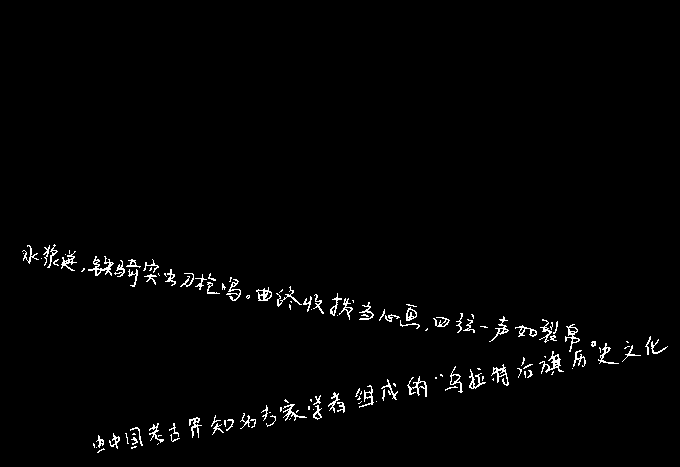 水浆迸,铁骑突出刀枪鸣。曲终收拨当心画,四弦一声如裂帛。
由中国考古界知名专家学者组成的“乌拉特后旗历史文化